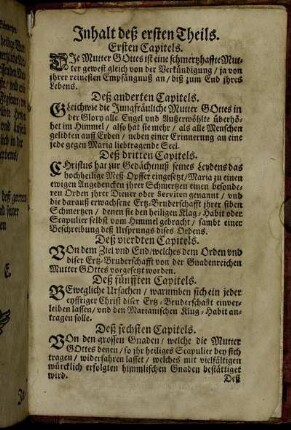 Inhalt deß ersten Theils.
Ersten Capitels.
DJe Mutter GOttes ist eine schmertzhaffte Mut-
ter gewest gleich von der Verkündigung / ja von
jhrer reinesten Empfängnuß an / biß zum End jhres
Lebens.
Deß anderten Capitels.
Gleichwie die Jungfräuliche Mutter GOttes in
der Glory alle Engel und Außerwöhlte überhö-
het im Himmel / also hat sie mehr / als alle Menschen
gelidten auff Erden / neben einer Erinnerung an eine
jede gegen Maria liebtragende Seel.
Deß dritten Capitels.
CHristus hat zur Gedächtnuß seines Leydens das
hochheilige Meß Opffer eingesetzt / Maria zu einen
ewigen Angedencken jhrer Schmertzen einen besonde-
ren Orden jhre Diener oder Serviten genannt / und
die darauß erwachsene Ertz-Bruderschafft jhrer siben
Schmertzen / denen sie den heiligen Klag-Habit oder
Scapulier selbst vom Himmel gebracht / sambt einer
Beschreibung deß Ursprungs dises Ordens.
Deß vierdten Capitels.
VOn dem Ziel und End / welches dem Orden und
diser Ertz-Bruderschafft von der Gnadenreichen
Mutter GOttes vorgesetzt worden.
Deß fünfften Capitels.
BEwegliche Ursachen / warumben sich ein jeder
eyffriger Christ diser Ertz-Bruderschafft einver-
leiben lassen / und den Marianischen Klag-Habit an-
tragen solle.
Deß sechsten Capitels.
VOn den grossen Gnaden / welche die Mutter
GOttes denen / so jhr heiliges Scapulier bey sich
tragen / widerfahren lasset / welches mit vielfältigen
würcklich erfolgten himmlischen Gnaden bestättiget
wird.
Deß